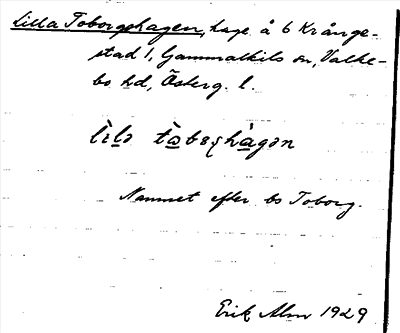 Lilla Toborgshagen, hage å 6 Krånge-
stad 1, Gammalkils sn, Valke-
bo hd, Österg. l.
lìlə tàbɛhàgən
Namnet efter bs Toborg.
Erik Alm 1929